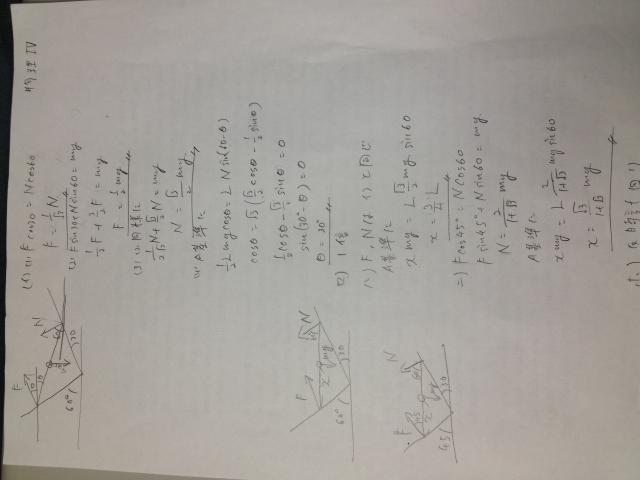 物理 IV
(イ) (1) F cos30 = N cos60
F = 1/√3 N
(2) F sin30 + N sin60 = mg
1/2 F + 3/2 F = mg
F = 1/2 mg
(3) (2)同様に
1/2√3 N + √3/2 N = mg
N = √3/2 mg
(4) A基準に
1/2 L mg cosθ = L N sin(60-θ)
cosθ = √3 (√3/2 cosθ - 1/2 sinθ)
1/2 cosθ - √3/2 sinθ = 0
sin(30°-θ) = 0
θ = 30°
ロ) 1倍
ハ) F, Nは イ) と同じ
A基準に
x mg = L √3/2 mg sin60
x = 3/4 L
ニ) F cos45° = N cos60
F sin45° + N sin60 = mg
N = 2/1+√3 mg
A基準に
x mg = L 2/1+√3 mg sin60
x = √3/1+√3 mg
F
N
60°
30
F
N
x
mg
60°
30
F
N
x
mg
45
30